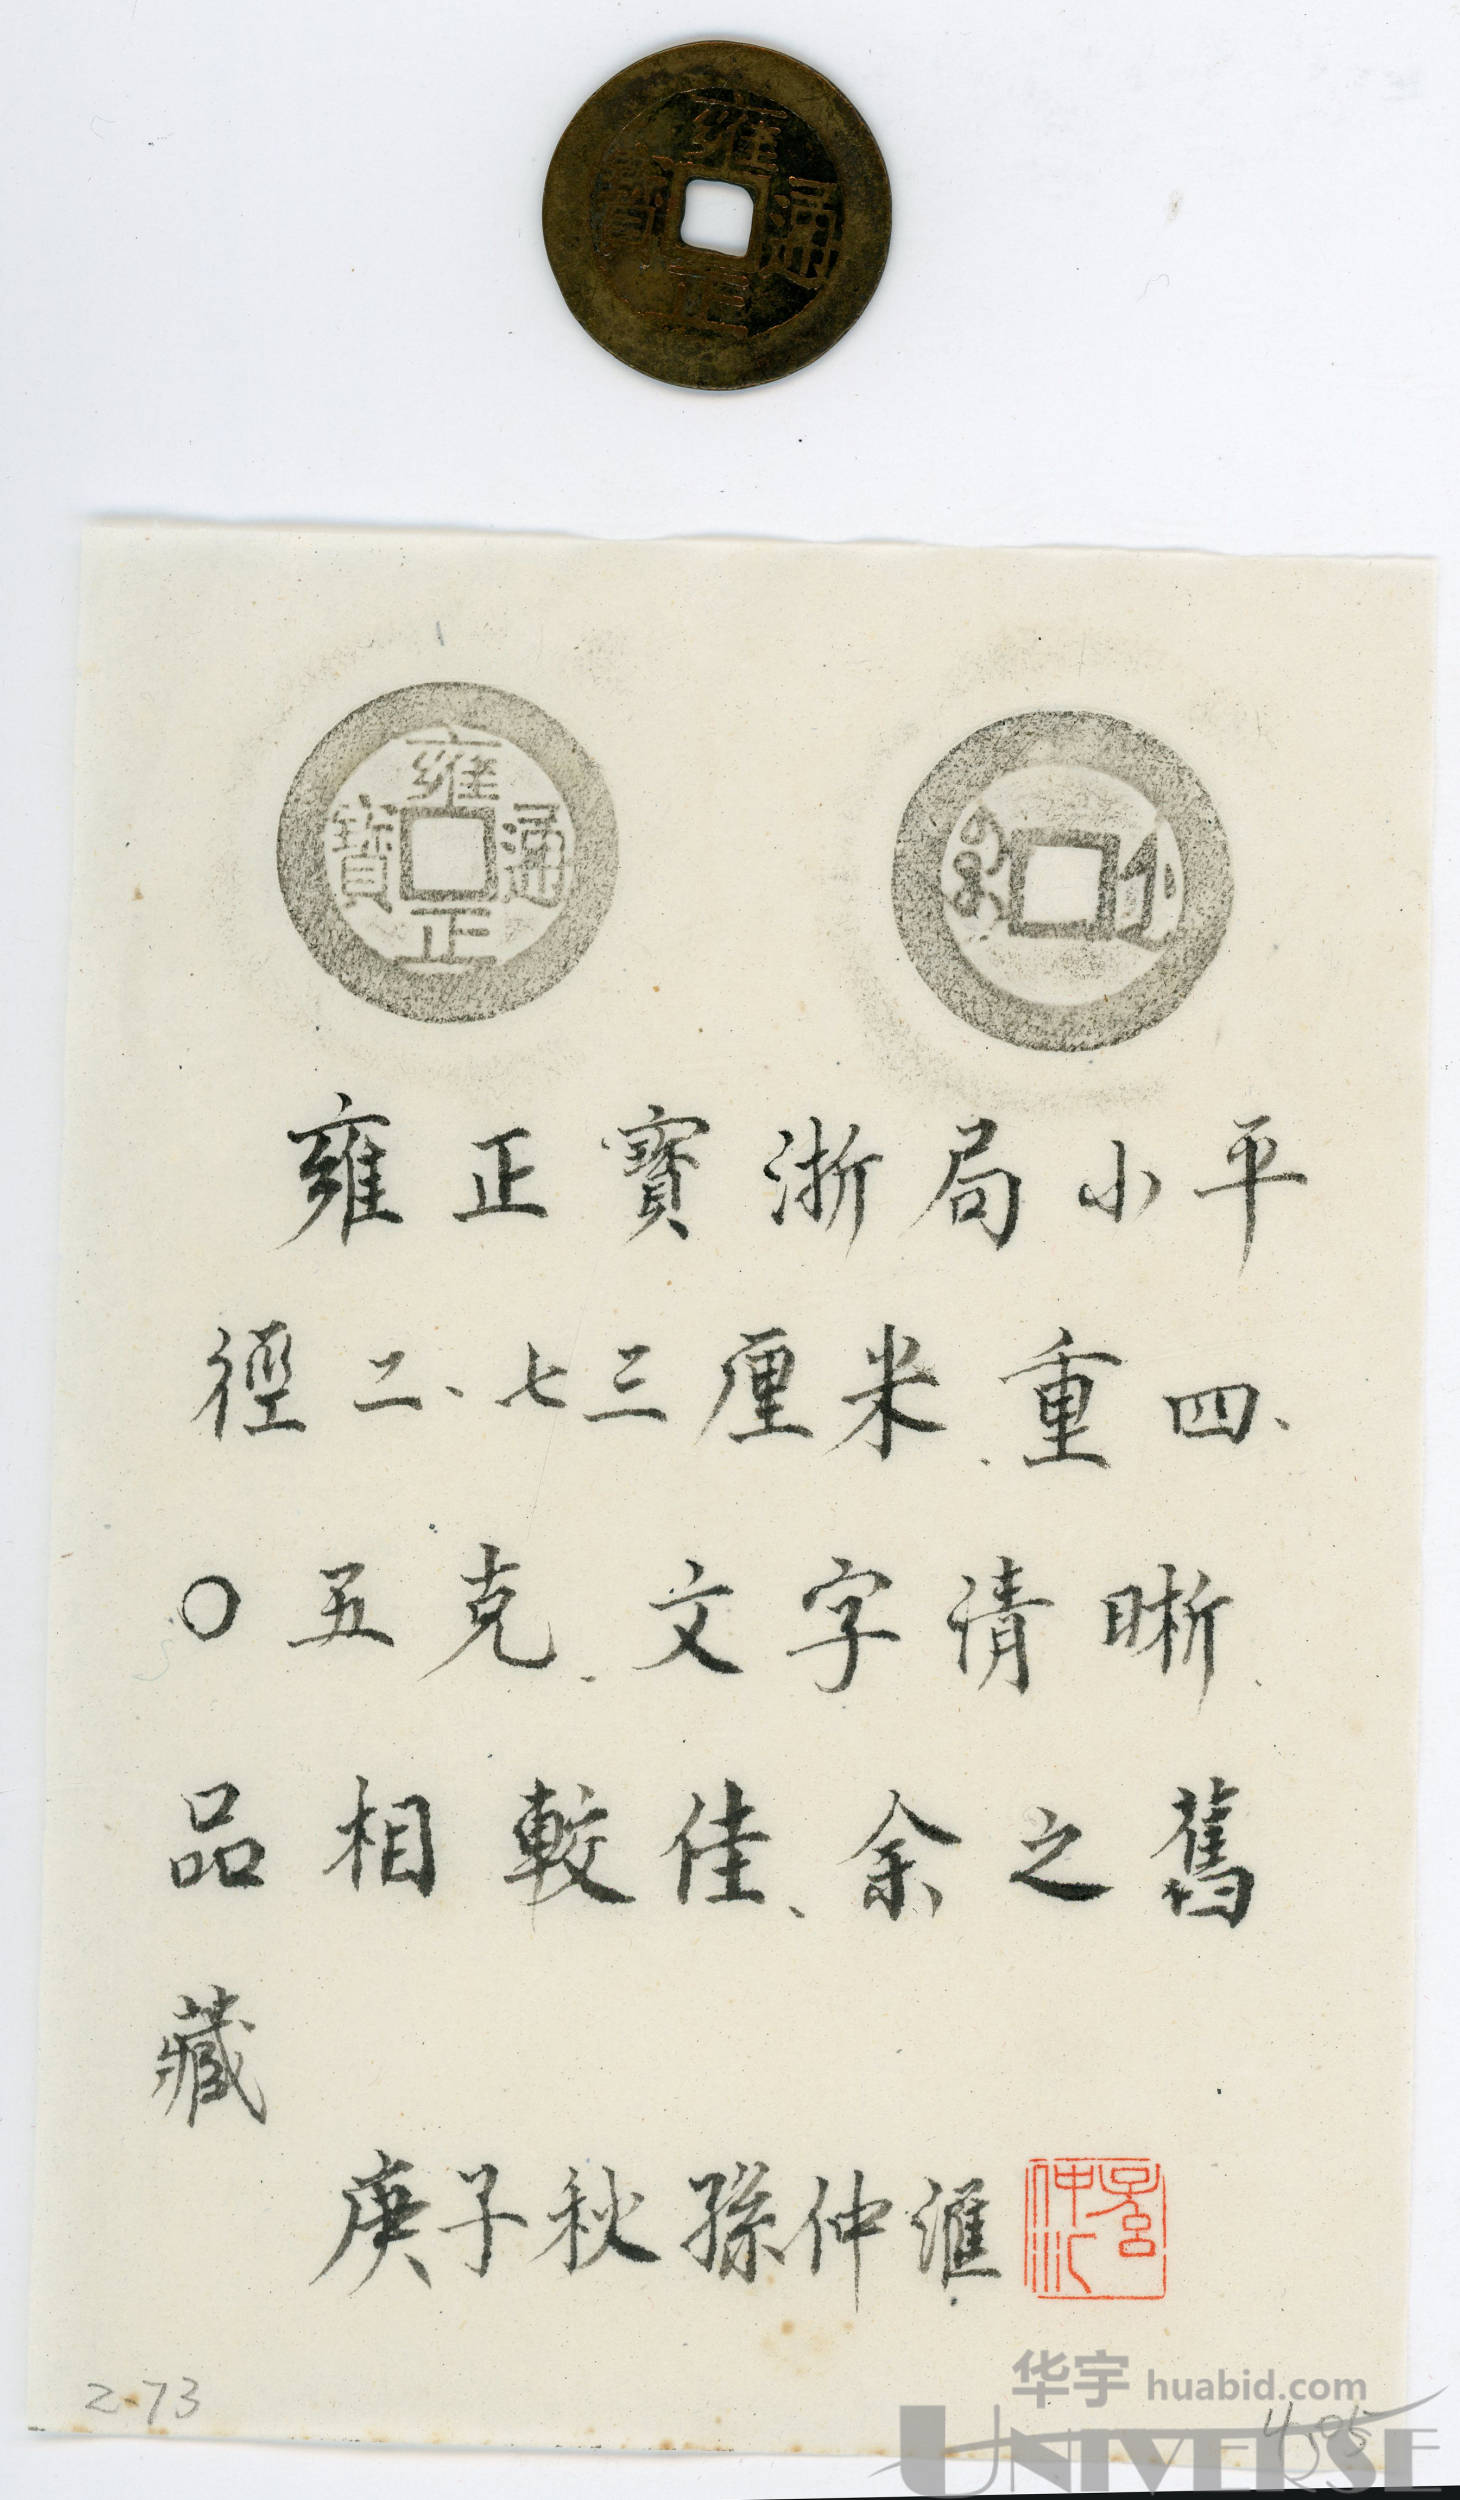 雍正通寳
雍正通寳
雍正寳浙局小平
徑二、七三厘米、重四、
〇五克、文字清晰、
品相較佳、余之舊
藏
庚子秋孫仲滙
2.73
4.05
华宇 huabid.com
UNIVERSE